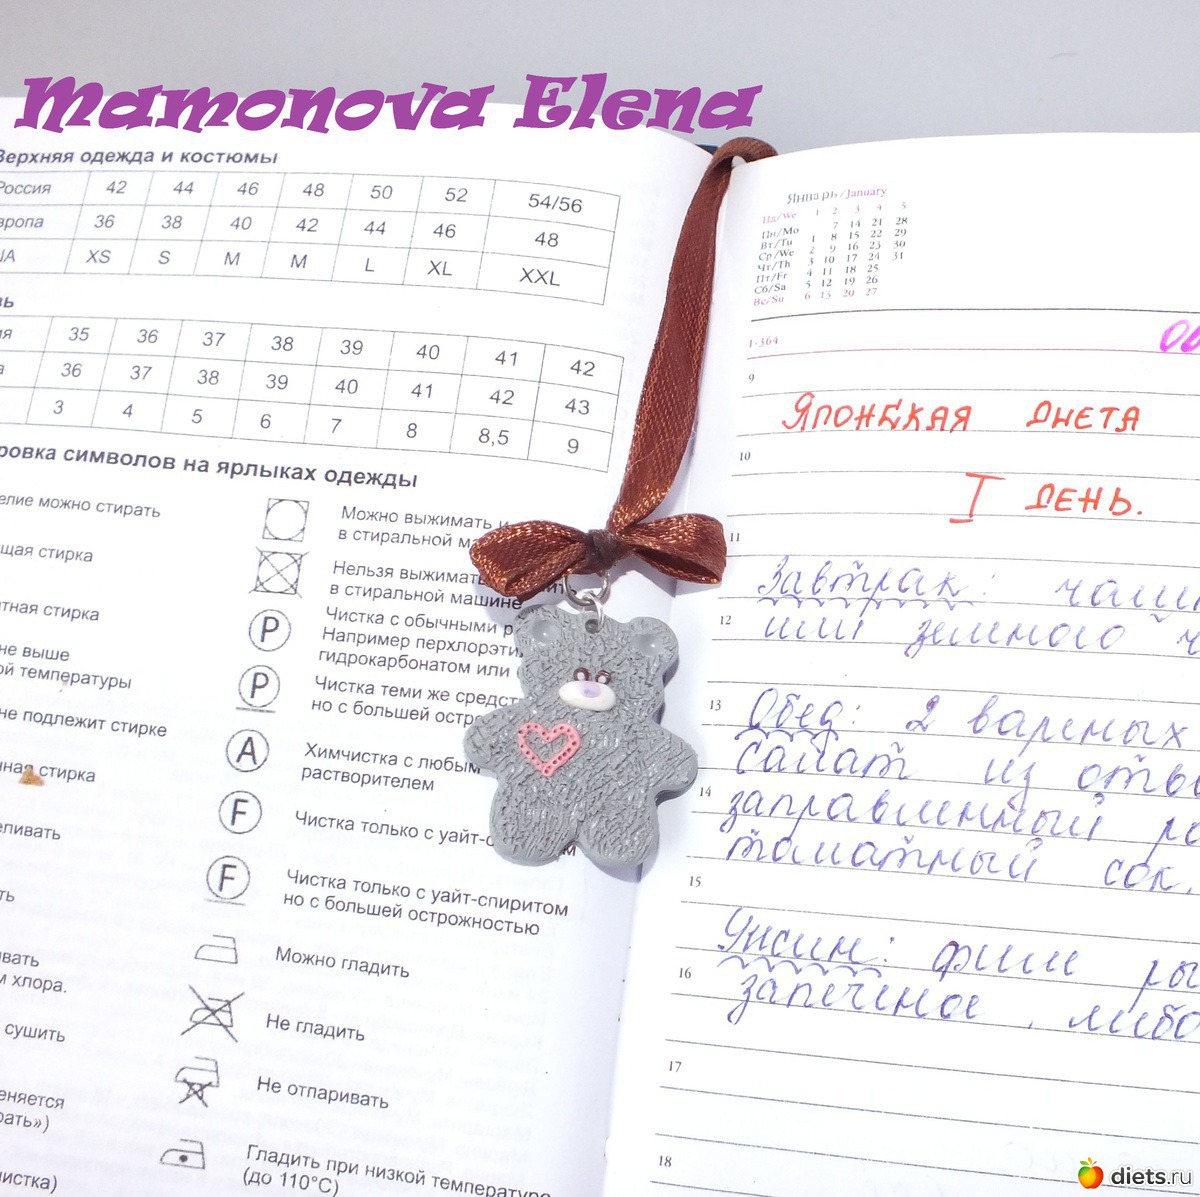 Mamonova Elena
Верхняя одежда и костюмы
Россия 42 44 46 48 50 52 54/56
вропа 36 38 40 42 44 46 48
ША XS S M M L XL XXL
вь
ия 35 36 37 38 39 40 41 42
а 36 37 38 39 40 41 42 43
3 4 5 6 7 8 8,5 9
ровка символов на ярлыках одежды
елие можно стирать
щая стирка
тная стирка
не выше
ой температуры
не подлежит стирке
ная стирка
еливать
ть
ивать
м хлора.
сушить
еняется
рать»)
истка)
Можно выжимать и
в стиральной ма
Нельзя выжимат
в стиральной машине
P
Чистка с обычными р
Например перхлорэти
гидрокарбонатом или
P
Чистка теми же средст
но с большей остро
A
Химчистка с любым
растворителем
F
Чистка только с уайт-с
F
Чистка только с уайт-спиритом
но с большей осторожностью
Можно гладить
Не гладить
Не отпаривать
Гладить при низкой температуре
(до 110°C)
Январь/January
Нд/We 1 2 3 4 5
Пн/Mo 7 14 21 28
Вт/Tu 1 8 15 22 29
Ср/We 2 9 16 23 30
Чт/Th 3 10 17 24 31
Пт/Fr 4 11 18 25
Сб/Sa 5 12 19 26
Вс/Su 6 13 20 27
1-364
9
ЯПОНСКАЯ ДИЕТА
10
I ДЕНЬ.
11
Завтрак: чаш
12
или зеленого ч
13
Обед: 2 вареных
салат из отва
14
заправленный ра
томатный сок.
15
Ужин: филе ры
16
запеченое, либо
17
18
diets.ru